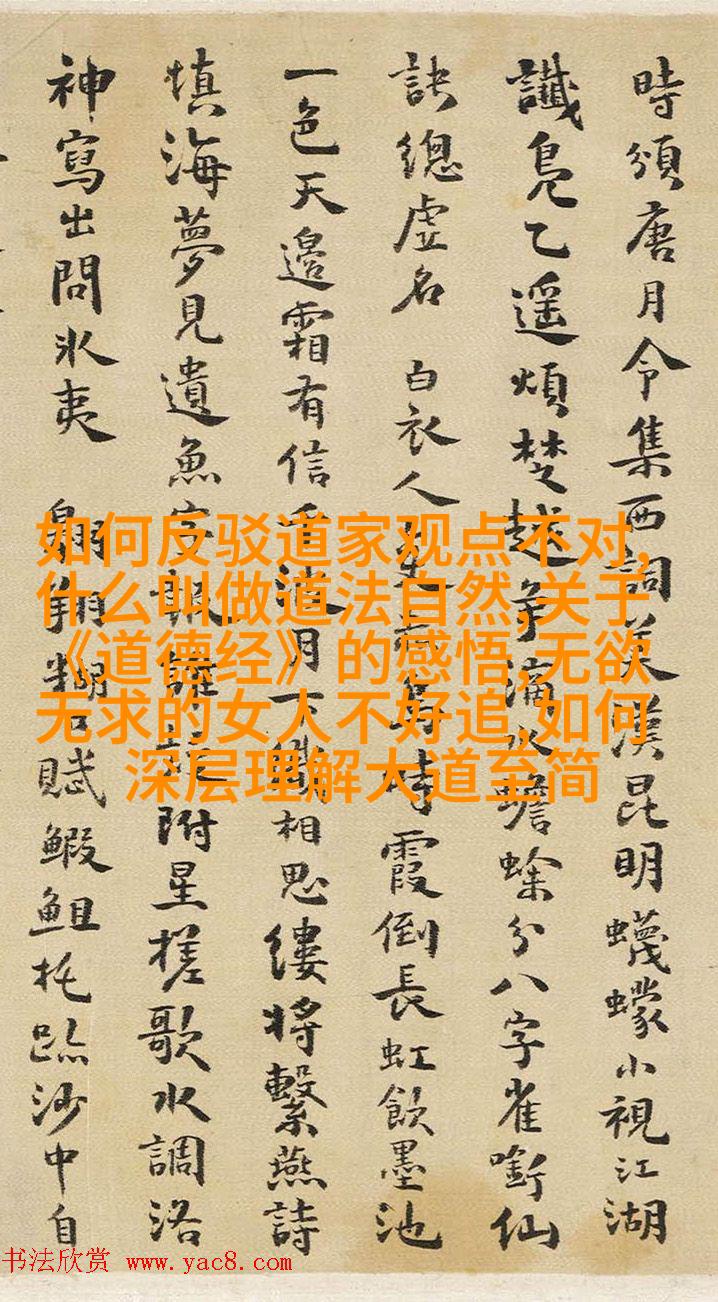 時頒唐月令集西詞美漢昆明蠛蠓小視江湖
讖鳧乙遥煩楚越争滴水蟾蜍分八字雀銜仙
訣總虚名 白衣人時霞倒長虹飲墨池
一色天邉霜有信月下相思縷将繫燕詩
填海夢見遺魚字附星槎歌水調洛
神寫出問氷夷 賦鰕鉏托跡沙中自
如何反驳道家观点不对,
什么叫做道法自然,关于
《道德经》的感悟,无欲
无求的女人不好追,如何
深层理解大道至简
书法欣赏 www.yac8.com